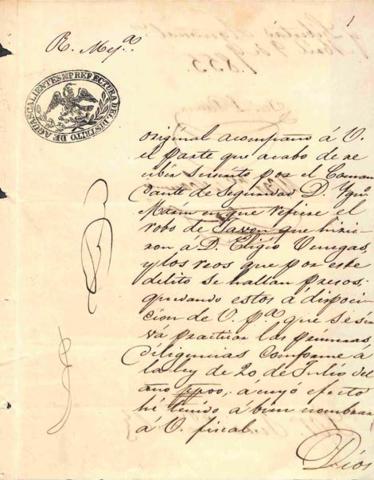 1
R. Mejª
PREFECTURA DEL DISTRITO DE AGUASCALIENTES
1855.
original acompaño á V.
el parte que acabo de re
cibir suscrito por el Coman
dante de Seguridad D. Ygn
en que refiere el
robo de que hicie
ron á D. Eligio Venegas,
y los reos que por este
delito se hallan presos;
quedando estos á disposi
cion de V. pª que se sir
vá practicar las primeras
diligencias comforme á
la ley de 20 de Julio del
año ppdo, á cuyo efecto
hé tenido á bien nombrar
á V. fiscal.
Dios